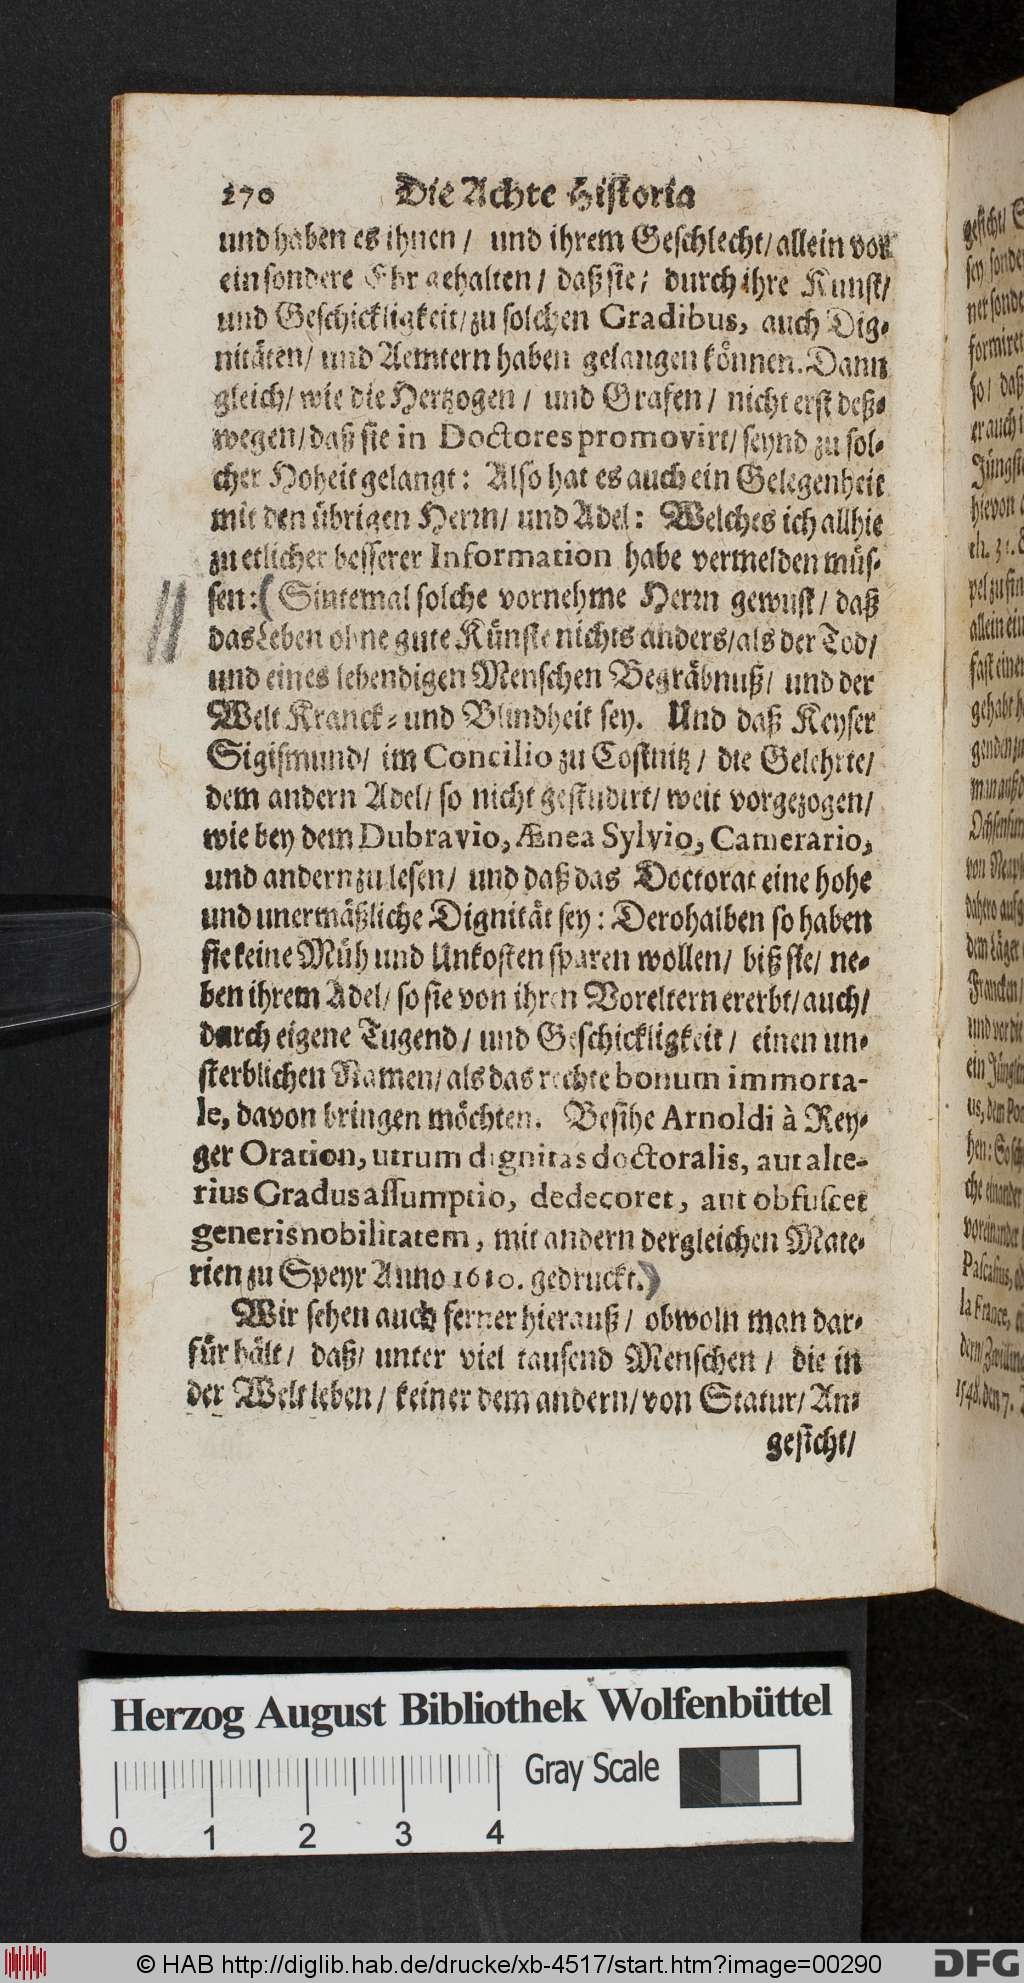 270 Die Achte Historia
und haben es ihnen / und ihrem Geschlecht / allein vor
ein sondere Ehr gehalten / daß sie / durch ihre Kunst /
und Geschickligkeit / zu solchen Gradibus, auch Dig-
nitäten / und Aemtern haben gelangen können. Dann
gleich / wie die Hertzogen / und Grafen / nicht erst deß-
wegen / daß sie in Doctores promovirt / seynd zu sol-
cher Hoheit gelangt: Also hat es auch ein Gelegenheit
mit den übrigen Herrn / und Adel: Welches ich allhie
zu etlicher besserer Information habe vermelden müs-
sen: (Sintemal solche vornehme Herrn gewust / daß
das Leben ohne gute Künste nichts anders / als der Tod /
und eines lebendigen Menschen Begräbnuß / und der
Welt Kranck- und Blindheit sey. Und daß Keyser
Sigismund / im Concilio zu Costnitz / die Gelehrte /
dem andern Adel / so nicht gestudirt / weit vorgezogen /
wie bey dem Dubravio, Ænea Sylvio, Camerario,
und andern zu lesen / und daß das Doctorat eine hohe
und unermäßliche Dignität sey: Derohalben so haben
sie keine Müh und Unkosten sparen wollen / biß sie / ne-
ben ihrem Adel / so sie von ihren Voreltern ererbt / auch /
durch eigene Tugend / und Geschickligkeit / einen un-
sterblichen Namen / als das rechte bonum immorta-
le, davon bringen möchten. Besihe Arnoldi à Rey-
ger Oration, utrum dignitas doctoralis, aut alte-
rius Gradus assumptio, dedecoret, aut obfuscet
generis nobilitatem, mit andern dergleichen Mate-
rien zu Speyr Anno 1610. gedruckt.)
Wir sehen auch ferner hierauß / obwoln man dar-
für hält / daß / unter viel tausend Menschen / die in
der Welt leben / keiner dem andern / von Statur / An-
gesicht /
Herzog August Bibliothek Wolfenbüttel
Gray Scale
0 1 2 3 4
© HAB http://diglib.hab.de/drucke/xb-4517/start.htm?image=00290
DFG